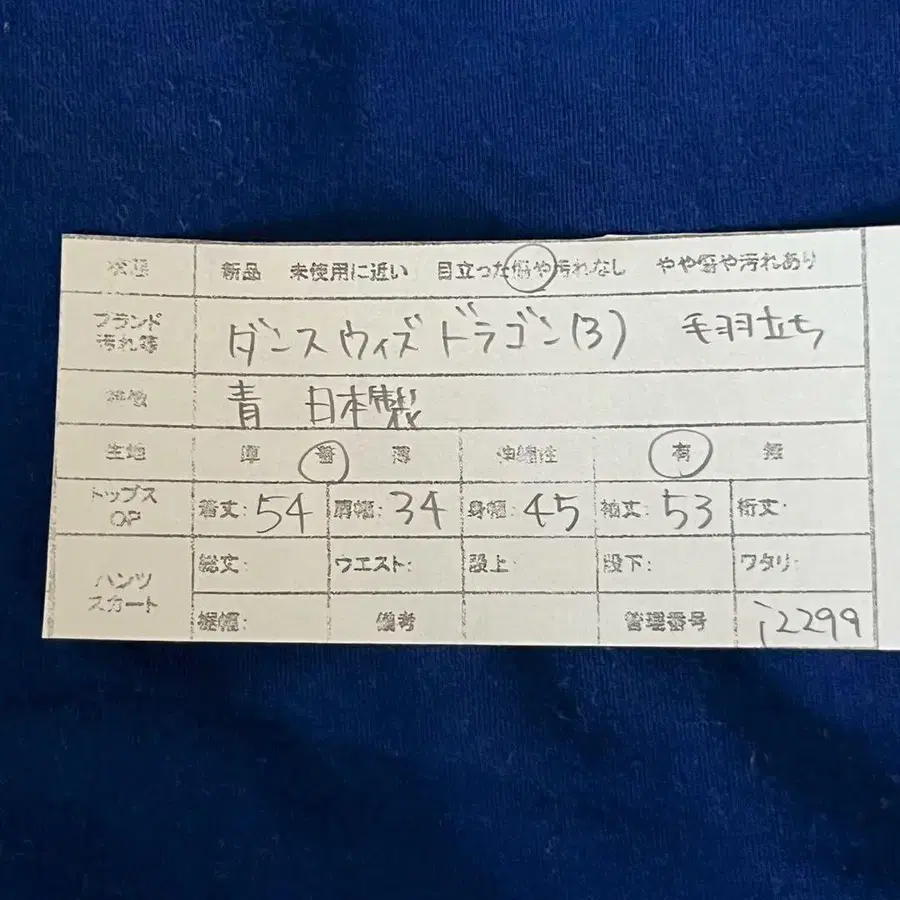 状態 新品 未使用に近い 目立った傷や汚れなし やや傷や汚れあり
ブランド 汚れ等 ダンスウィズドラゴン(3) 毛羽立ち
特徴 青 日本製
生地 厚 普 薄 伸縮性 有 無
トップス OP 着丈: 54 肩幅: 34 身幅: 45 袖丈: 53 裄丈:
パンツ スカート 総丈: ウエスト: 股上: 股下: ワタリ:
裾幅: 備考 管理番号 i2299